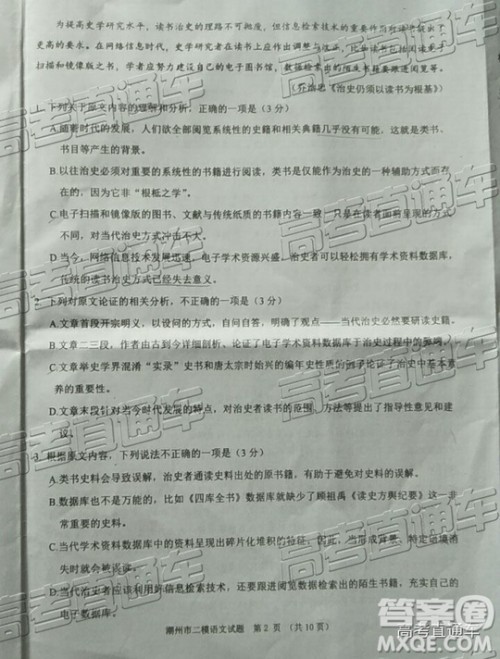 为提高史学研究水平,读书治史的理路不可抛废,但信息检索技术的重要作用
更高的要求。在网络信息时代,史学研究者在读书上应作出调整与
扫描和镜像版之书,学者应努力建设自己的电子图书馆,
《治史仍须以读书为根基》)
1. 下列关于原文内容的理解和分析,正确的一项是(3分)
A.随着时代的发展,人们欲全部阅览系统性的史籍和相关典籍几乎没有可能,这就是类书、
书目等产生的背景。
B.以往治史必须对重要的系统性的书籍进行阅读,类书是仅能作为治史的一种辅助方式而存
在的,因为它非“根柢之学”。
C.电子扫描和镜像版的图书、文献与传统纸质的书籍一切相同,只是在读者面前呈现的方式
不同,对当代治史方式冲击不大。
D.当今,网络信息技术发展迅速,电子学术资源兴盛,治史者可以轻松拥有学术资料数据库,
传统的读书治史方式已经失去意义。
2. 下列对原文论证的相关分析,不正确的一项是(3分)
A.文章首段开宗明义,以设问的方式,自问自答,明确了观点——当代治史必然要研读史籍。
B.文章二三段,作者由古到今详细剖析、论证了电子学术资料数据库于治史过程中的
C.文章举史学界混淆“实录”史书和唐太宗时始兴的编年史性质的例子论证了治史中基本素
养的重要性。
D.文章末段针对当今时代发展的特点,对治史者读书的范围、方法等提出了指导性意见和建
议。
3. 根据原文内容,下列说法不正确的一项是(3分)
A.类书史料会导致误解,治史者通读史料出处的原书籍,有助于避免对史料的误解。
B.数据库也不是万能的,比如《四库全书》数据库就缺少了顾祖禹《读史方舆纪要》这一非
常重要的史料。
C.当代学术资料数据库中的资料呈现出碎片化堆积的状态,因此,当形成背景、特定内涵
时就会被误读。
D.当代治史者应该利用好信息检索技术,还要跟进阅览数据库检索的陌生书籍,充实自己的
电子数据库。
潮州市二模语文试题 第2页 (共10页)
高考直通车
答案圈
MXQE.COM